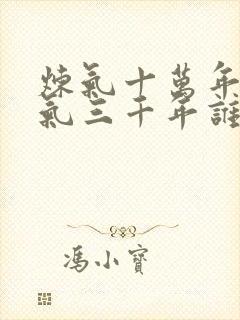 煉氣十萬年
氣三千年誰
馮小寶